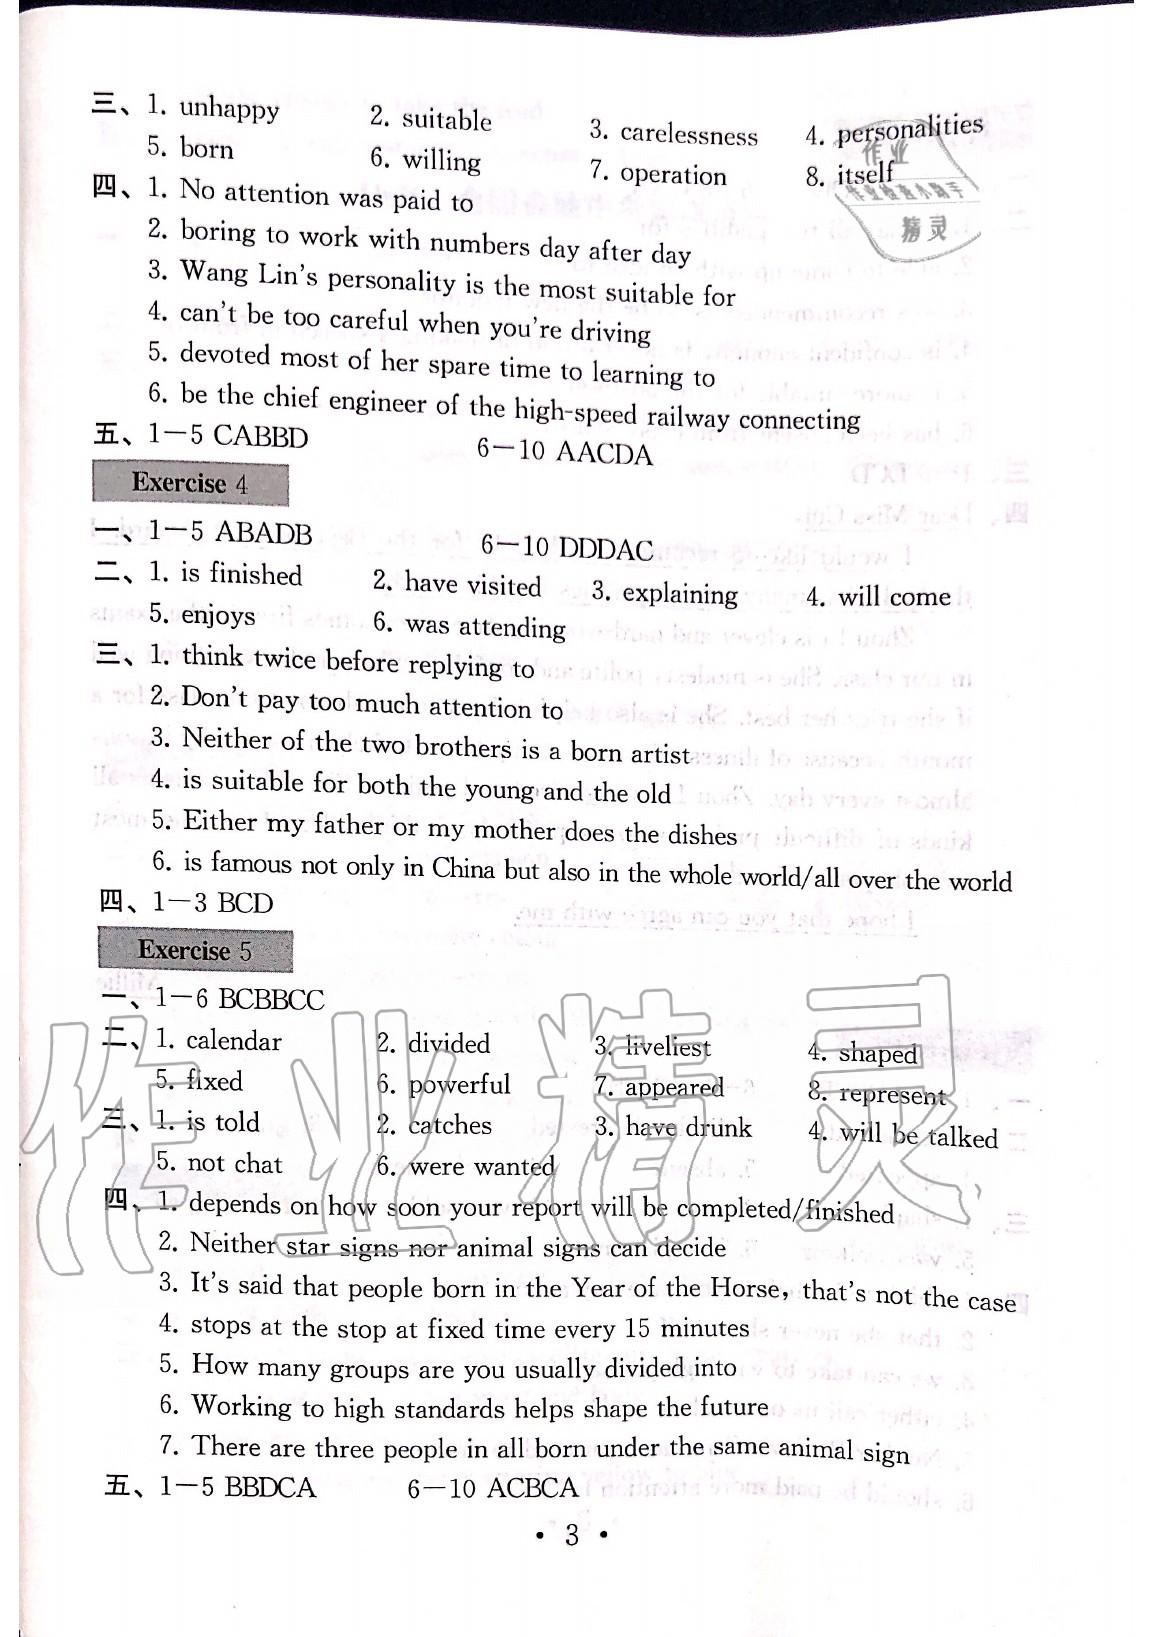 三、1. unhappy 2. suitable 3. carelessness 4. personalities
5. born 6. willing 7. operation 8. itself
四、1. No attention was paid to
2. boring to work with numbers day after day
3. Wang Lin's personality is the most suitable for
4. can't be too careful when you're driving
5. devoted most of her spare time to learning to
6. be the chief engineer of the high-speed railway connecting
五、1—5 CABBD 6—10 AACDA
Exercise 4
一、1—5 ABADB 6—10 DDDAC
二、1. is finished 2. have visited 3. explaining 4. will come
5. enjoys 6. was attending
三、1. think twice before replying to
2. Don't pay too much attention to
3. Neither of the two brothers is a born artist
4. is suitable for both the young and the old
5. Either my father or my mother does the dishes
6. is famous not only in China but also in the whole world/all over the world
四、1—3 BCD
Exercise 5
一、1—6 BCBBCC
二、1. calendar 2. divided 3. liveliest 4. shaped
5. fixed 6. powerful 7. appeared 8. represent
三、1. is told 2. catches 3. have drunk 4. will be talked
5. not chat 6. were wanted
四、1. depends on how soon your report will be completed/finished
2. Neither star signs nor animal signs can decide
3. It's said that people born in the Year of the Horse, that's not the case
4. stops at the stop at fixed time every 15 minutes
5. How many groups are you usually divided into
6. Working to high standards helps shape the future
7. There are three people in all born under the same animal sign
五、1—5 BBDCA 6—10 ACBCA
• 3 •
作业
作业检查小助手
精灵
作业精灵